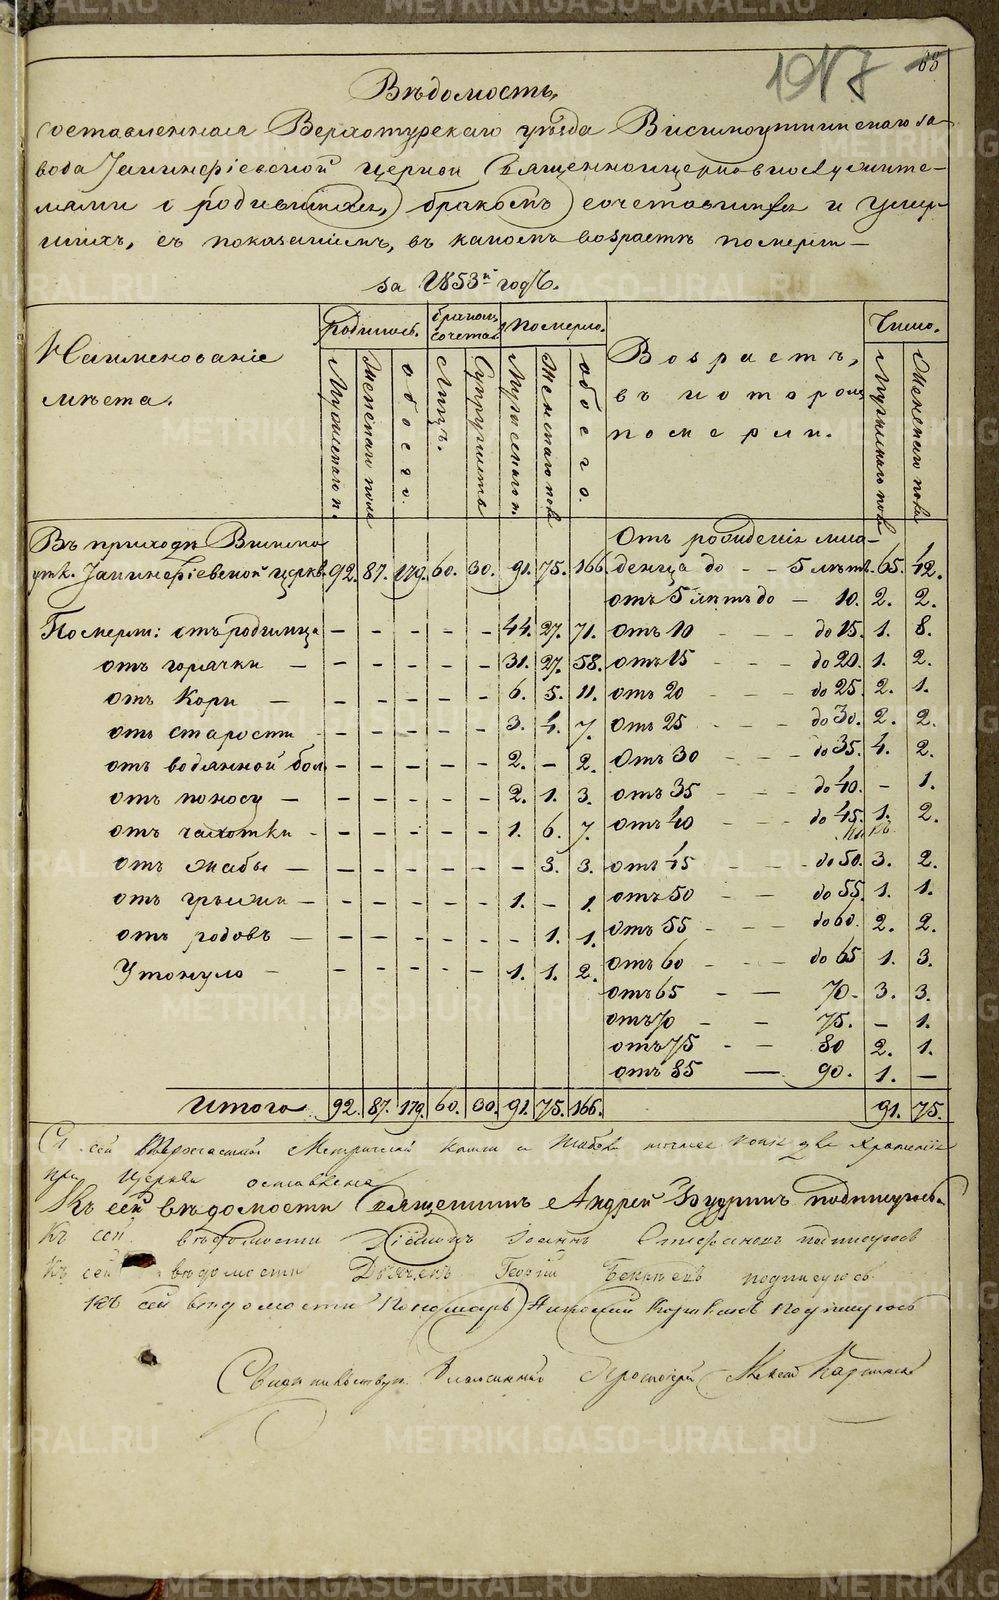 1017 68
Вѣдомость,
составленная Верхотурскаго уѣзда Висимоуткинскаго за-
вода Іаннифіевской церкви священноцерковнослужите-
лями о родившихся, бракомъ сочетавшихся и умер-
шихъ, съ показаніемъ, въ какомъ возрастѣ померли —
за 1853й годъ.
Наименованіе мѣста. Родилось. Бракомъ сочетал. Померло. Возрастъ, въ которомъ померли. Число.
Мужескаго п. Женскаго пола обоего. Лицъ. Супружествъ Мужескаго п. Женскаго пола обоего. Мужескаго пола Женскаго пола
Въ приходѣ Висимо
утк. церкв. 92. 87. 179. 60. 30. 91. 75. 166.
Отъ рожденія мла-
денца до - - 5 лѣтъ. 65. 42.
отъ 5 лѣтъ до — 10. 2. 2.
Померли: отъ родимца - - - - - 44. 27. 71. отъ 10 - - - до 15. 1. 8.
отъ горячки — - - - - - 31. 27. 58. отъ 15 - - - до 20. 1. 2.
отъ кори — - - - - - 6. 5. 11. отъ 20 - - - до 25. 2. 1.
отъ старости - - - - - 3. 4. 7. отъ 25 - - - до 30. 2. 2.
отъ водянной бол. - - - - - 2. - 2. отъ 30 - - - до 35. 4. 2.
отъ поносу — - - - - - 2. 1. 3. отъ 35 - - - до 40. - 1.
отъ чахотки - - - - - - 1. 6. 7. отъ 40 - - - до 45. 1. 2.
отъ жабы — - - - - - - 3. 3. отъ 45 - - - до 50. 3. 2.
отъ грыжи — - - - - - 1. - 1. отъ 50 - - до 55. 1. 1.
отъ родовъ — - - - - - - 1. 1. отъ 55 - - до 60. 2. 2.
Утонуло — - - - - - 1. 1. 2. отъ 60 - - - до 65 1. 3.
отъ 65 - — 70. 3. 3.
отъ 70 - - 75. - 1.
отъ 75 - — 80 2. 1.
отъ 85 — 90. 1. —
Итого 92. 87. 179. 60. 30. 91. 75. 166. 91. 75.
сей Метрической книги
при Церкви оставлена
Къ сей вѣдомости Священникъ Андрей Будринъ подписуюсь.
Къ сей вѣдомости Діаконъ Іоаннъ подписуюсь
Къ сей вѣдомости Дьячекъ Георгій подписуюсь
Къ сей вѣдомости Пономарь подписуюсь
Благочинный Протоіерей
METRIKI.GASO-URAL.RU